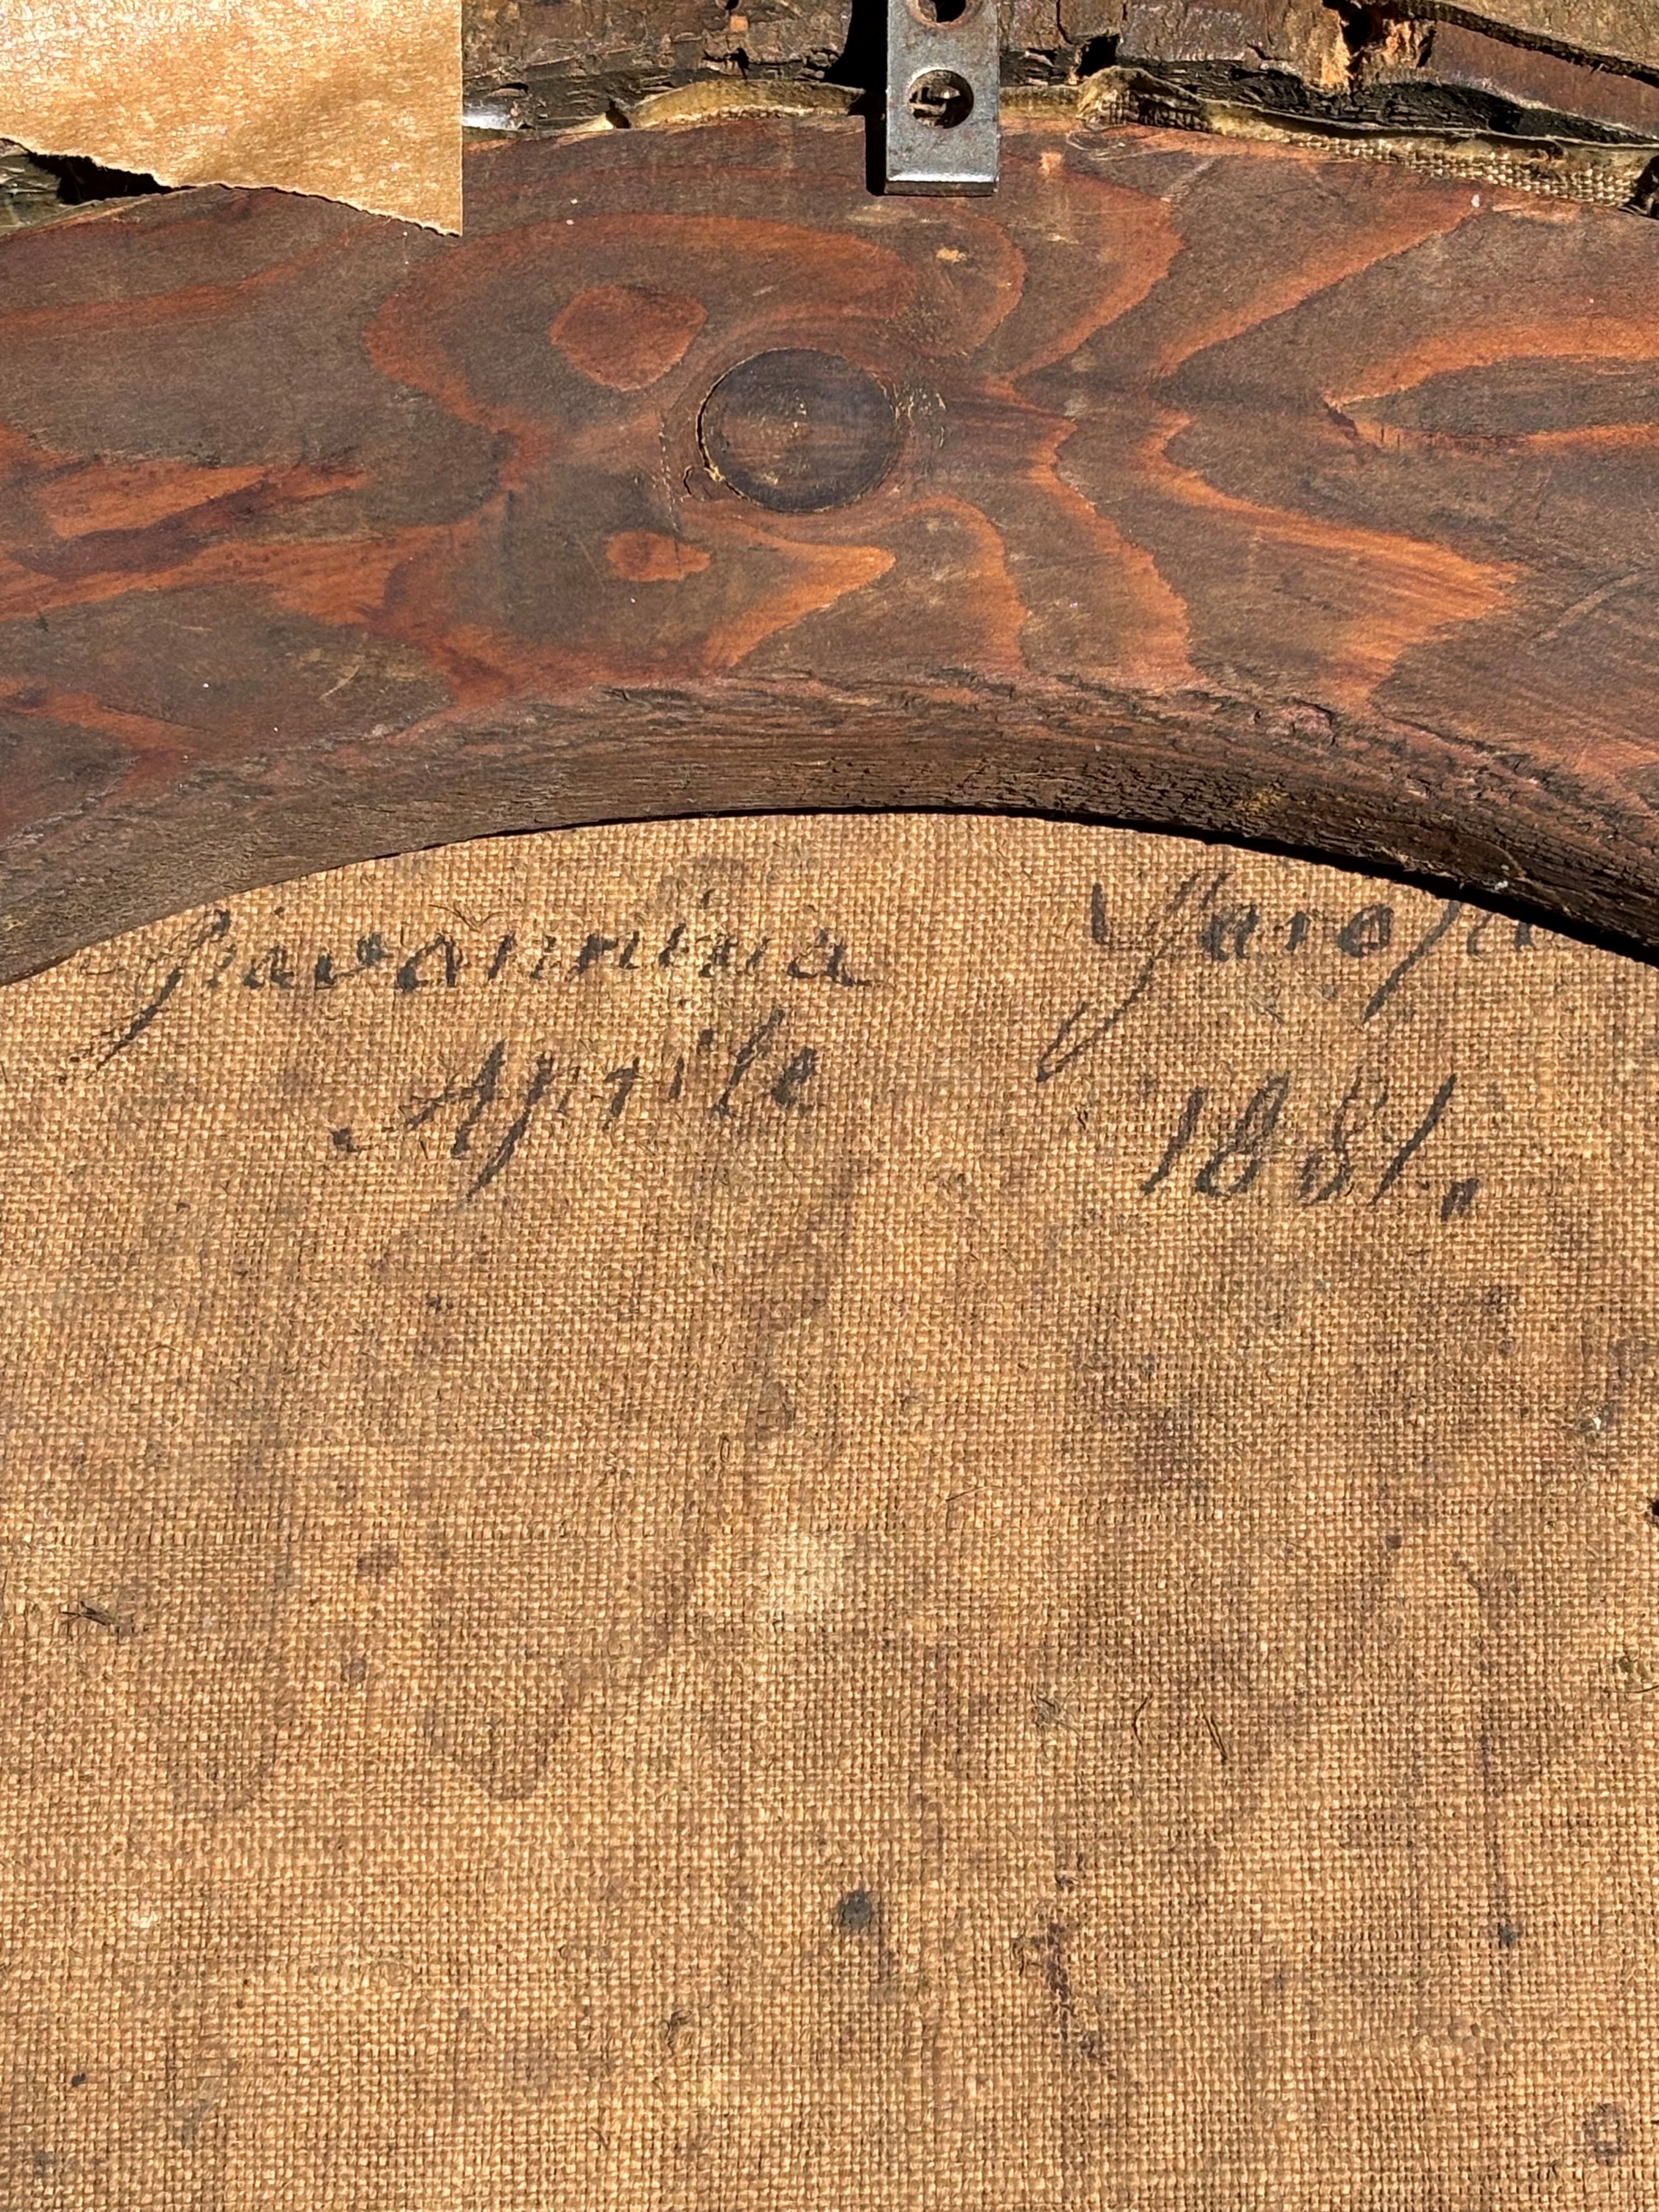 Giovannina Garofa
Aprile 1881.